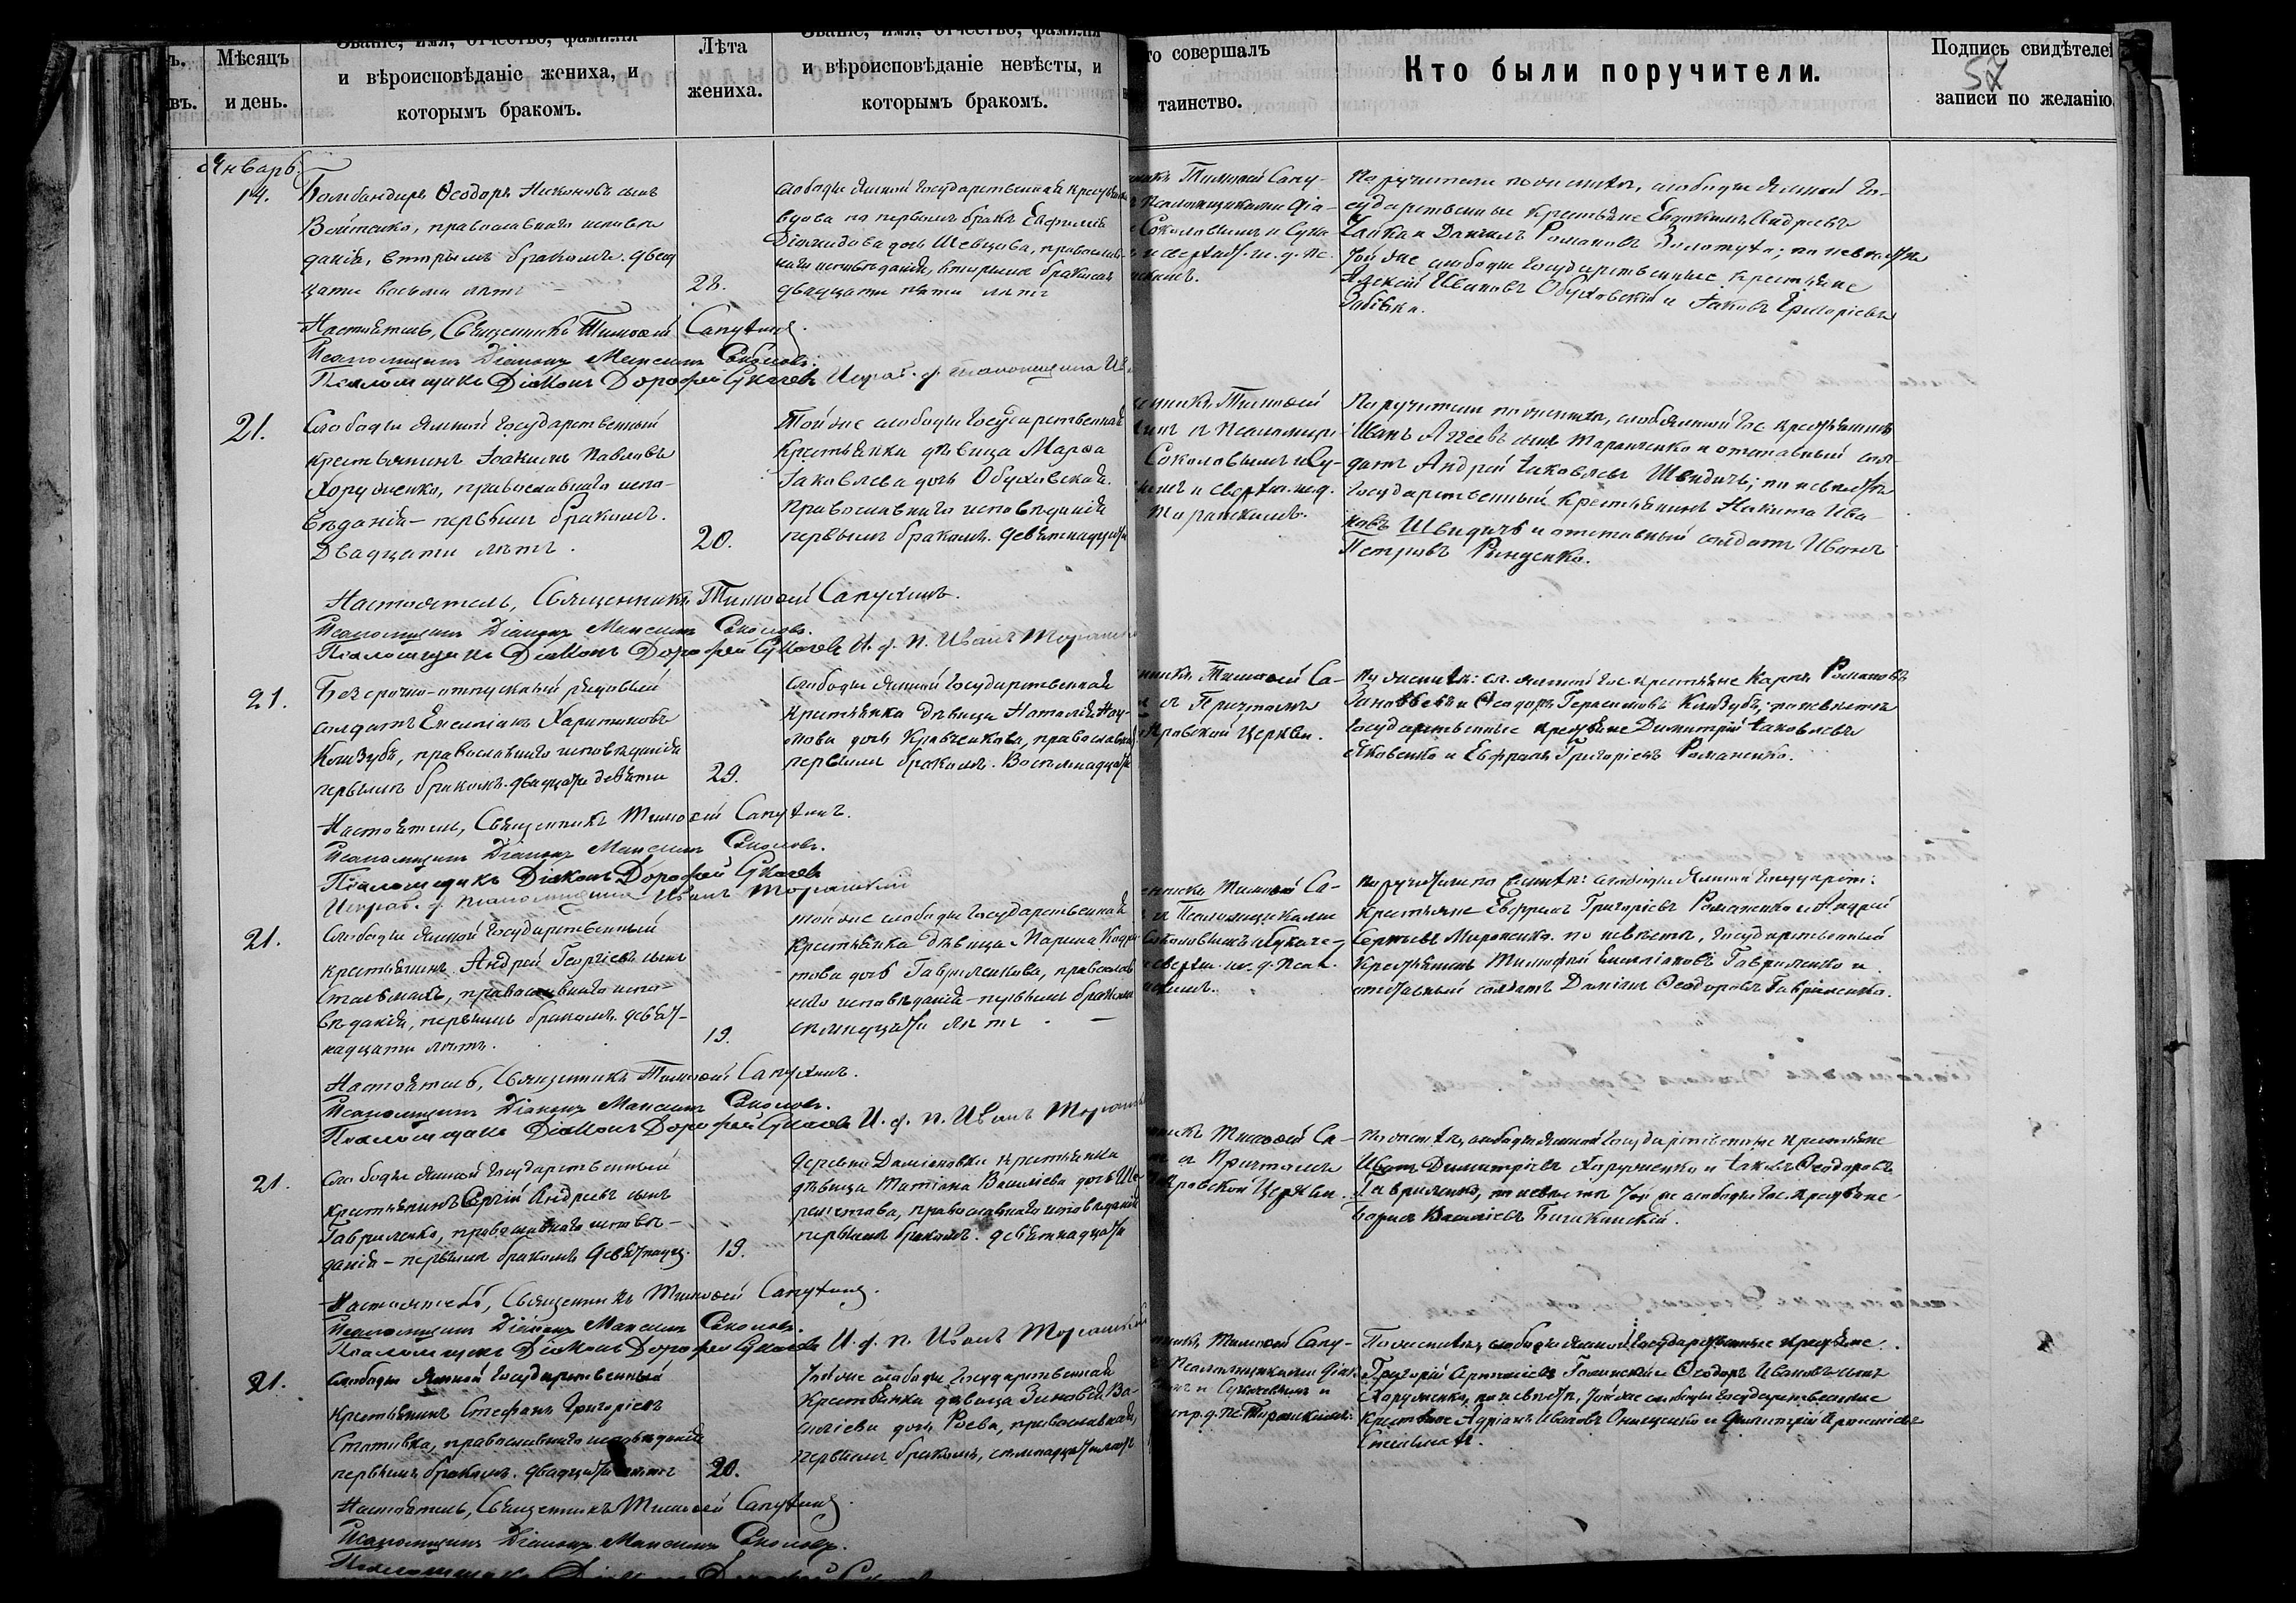 Мѣсяцъ
и день.
и вѣроисповѣданіе жениха, и
которымъ бракомъ.
Лѣта
жениха.
и вѣроисповѣданіе невѣсты, и
которымъ бракомъ.
совершалъ
таинство.
Кто были поручители.
Подпись свидѣтеле
записи по желанію
57
Январь
14.
Бомбандиръ Ѳеодоръ Никоновъ сынъ
Войтенко, православнаго исповѣ
данія, вторымъ бракомъ. двад
цати восьми лѣтъ
28.
слободы Ямной государственная крестьянка
вдова по первомъ бракѣ Евфимія
Діомидова дочь Шевцова, православ-
наго исповѣданія, вторымъ бракомъ
двадцати пяти лѣтъ
Тимоѳей Сапу-
Псаломщиками Діа-
Соколовымъ и Сука
Поручители по женихѣ, слободы Ямной Го-
сударственные крестьяне Евдокимъ Андреевъ
Чайка и Даніилъ Романовъ Золотухa; по невѣстѣ
той же слободы государственные крестьяне
Алексій Ивановъ Обуховскій и Іаковъ Григорьевъ
Настоятель, Священникъ Тимоѳей Сапухинъ.
Псаломщикъ Діаконъ Максимъ Соколовъ.
Псаломщикъ Діаконъ Дорофей Сукачевъ Исправ. д. псаломщика
21.
Слободы Ямной государственный
крестьянинъ Іоакимъ Павловъ
Хоруженко, православнаго испо-
вѣданія - первымъ бракомъ.
Двадцати лѣтъ.
20.
Той же слободы Государственная
крестьянка дѣвица Марѳа
Іаковлева дочь Обуховская.
Православнаго исповѣданія
первымъ бракомъ. девятнадцати
Тимоѳей
и Псаломщи-
Соколовымъ и Су-
Торанскимъ.
Поручители по женихѣ, слоб. Ямной Гос. крестьянинъ
Иванъ Аггеевъ сынъ Таранченко и отставный сол-
датъ Андрей Іаковлевъ Швидичъ; по невѣстѣ
Государственный крестьянинъ Никита Ива-
новъ Швидичъ и отставный солдатъ Иванъ
Петровъ
Настоятель, Священникъ Тимоѳей Сапухинъ.
Псаломщикъ Діаконъ Максимъ Соколовъ.
Псаломщикъ Діаконъ Дорофей Сукачевъ И. д. п. Иванъ
21.
Безсрочно-отпускный рядовый
солдатъ Емиліанъ Харитоновъ
Козизубъ, православнаго исповѣданія
первымъ бракомъ. двадцати девяти
29.
слободы Ямной государственная
крестьянка дѣвица Наталія Нау-
мова дочь Кравченкова, православная
первымъ бракомъ. Восемнадцати
Тимоѳей Са-
и Причтомъ
Покровской Церкви.
По женихѣ: сл. Ямной гос. крестьяне Карпъ Романовъ
и Ѳеодоръ Герасимовъ Козизубъ; по невѣстѣ
государственные крестьяне Димитрій Іаковлевъ
Яковенко и Евфремъ Григорьевъ Романенко.
Настоятель, Священникъ Тимоѳей Сапухинъ.
Псаломщикъ Діаконъ Максимъ Соколовъ.
Псаломщикъ Діаконъ Дорофей Сукачевъ
Исправ. д. псаломщика Иванъ Торанскій
21.
Слободы Ямной Государственный
крестьянинъ Андрей Георгіевъ сынъ
Стальмахъ, православнаго испо-
вѣданія, первымъ бракомъ. девят-
надцати лѣтъ.
19.
той же слободы Государственная
крестьянка дѣвица Марина Кодра-
това дочь Гавриленкова, православ
наго исповѣданія - первымъ бракомъ
семнадцати лѣтъ
Тимоѳей Са-
и Псаломщиками
Соколовымъ и Сукаче-
Поручители по женихѣ: слободы Ямной государст:
крестьяне Евфремъ Григорьевъ Романенко и Андрей
Сергѣевъ Мироненко. по невѣстѣ, государственный
крестьянинъ Тимоѳей Емиліановъ Гавриленко и
отставный солдатъ Даміанъ Ѳеодоровъ Гавриленко.
Настоятель, Священникъ Тимоѳей Сапухинъ.
Псаломщикъ Діаконъ Максимъ Соколовъ.
Псаломщикъ Діаконъ Дорофей Сукачевъ И. д. п. Иванъ
21.
Слободы Ямной государственный
крестьянинъ Сергій Андреевъ сынъ
Гавриленко, православнаго исповѣ-
данія - первымъ бракомъ девятнадц.
19.
деревни Даміановки крестьянка
дѣвица Татіана Василіева дочь Ше-
православнаго исповѣданія
первымъ бракомъ. девятнадцати
Тимоѳей Са-
и Причтомъ
Покровской Церкви.
По женихѣ, слободы Ямной государственные крестьяне
Иванъ Димитріевъ Хоруженко и Іаковъ Ѳеодоровъ
Гавриленко, по невѣстѣ той же слободы гос. крестьяне
Борисъ Василіевъ
Настоятель, Священникъ Тимоѳей Сапухинъ.
Псаломщикъ Діаконъ Максимъ Соколовъ.
Псаломщикъ Діаконъ Дорофей Сукачевъ И. д. п. Иванъ Торанскій
21.
Слободы Ямной Государственный
крестьянинъ Стефанъ Григорьевъ
Стативка, православнаго исповѣданія
первымъ бракомъ. двадцати лѣтъ
20.
Той же слободы Государственная
крестьянка дѣвица Зиновія Ва-
силіева дочь Роева, православная,
первымъ бракомъ, семнадцати лѣтъ
Тимоѳей Сапу-
Псаломщиками Діак
и Сукачевымъ и
По женихѣ, слободы Ямной государственные крестьяне
Григорій и Ѳеодоръ Ивановъ сынъ
Хоруженко, по невѣстѣ, той же слободы государственные
крестьяне Адріанъ Ивановъ Онищенко и Димитрій
Настоятель, Священникъ Тимоѳей Сапухинъ.
Псаломщикъ Діаконъ Максимъ Соколовъ.